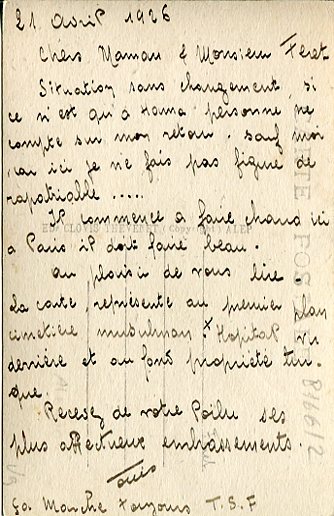 21 Avril 1926
Chers Maman & Monsieur Feret
Situation sans changement, si
ce n'est qu'à Hama personne ne
compte sur mon retour. sauf moi
car ici je ne fais pas figure de
rapatriable .....
Il commence a faire chaud ici
a Paris il doit faire beau.
Au plaisir de vous lire.
La carte représente au premier plan
cimetière musulman, x Hopital vu
derrière et au fond propriété tur-
que.
Recevez de votre Poilu ses
plus affectueux embrassements.
Ça Marche toujours T.S.F
CARTE POSTALE
Ed. CLOVIS THEVENET (Copyright) ALEP